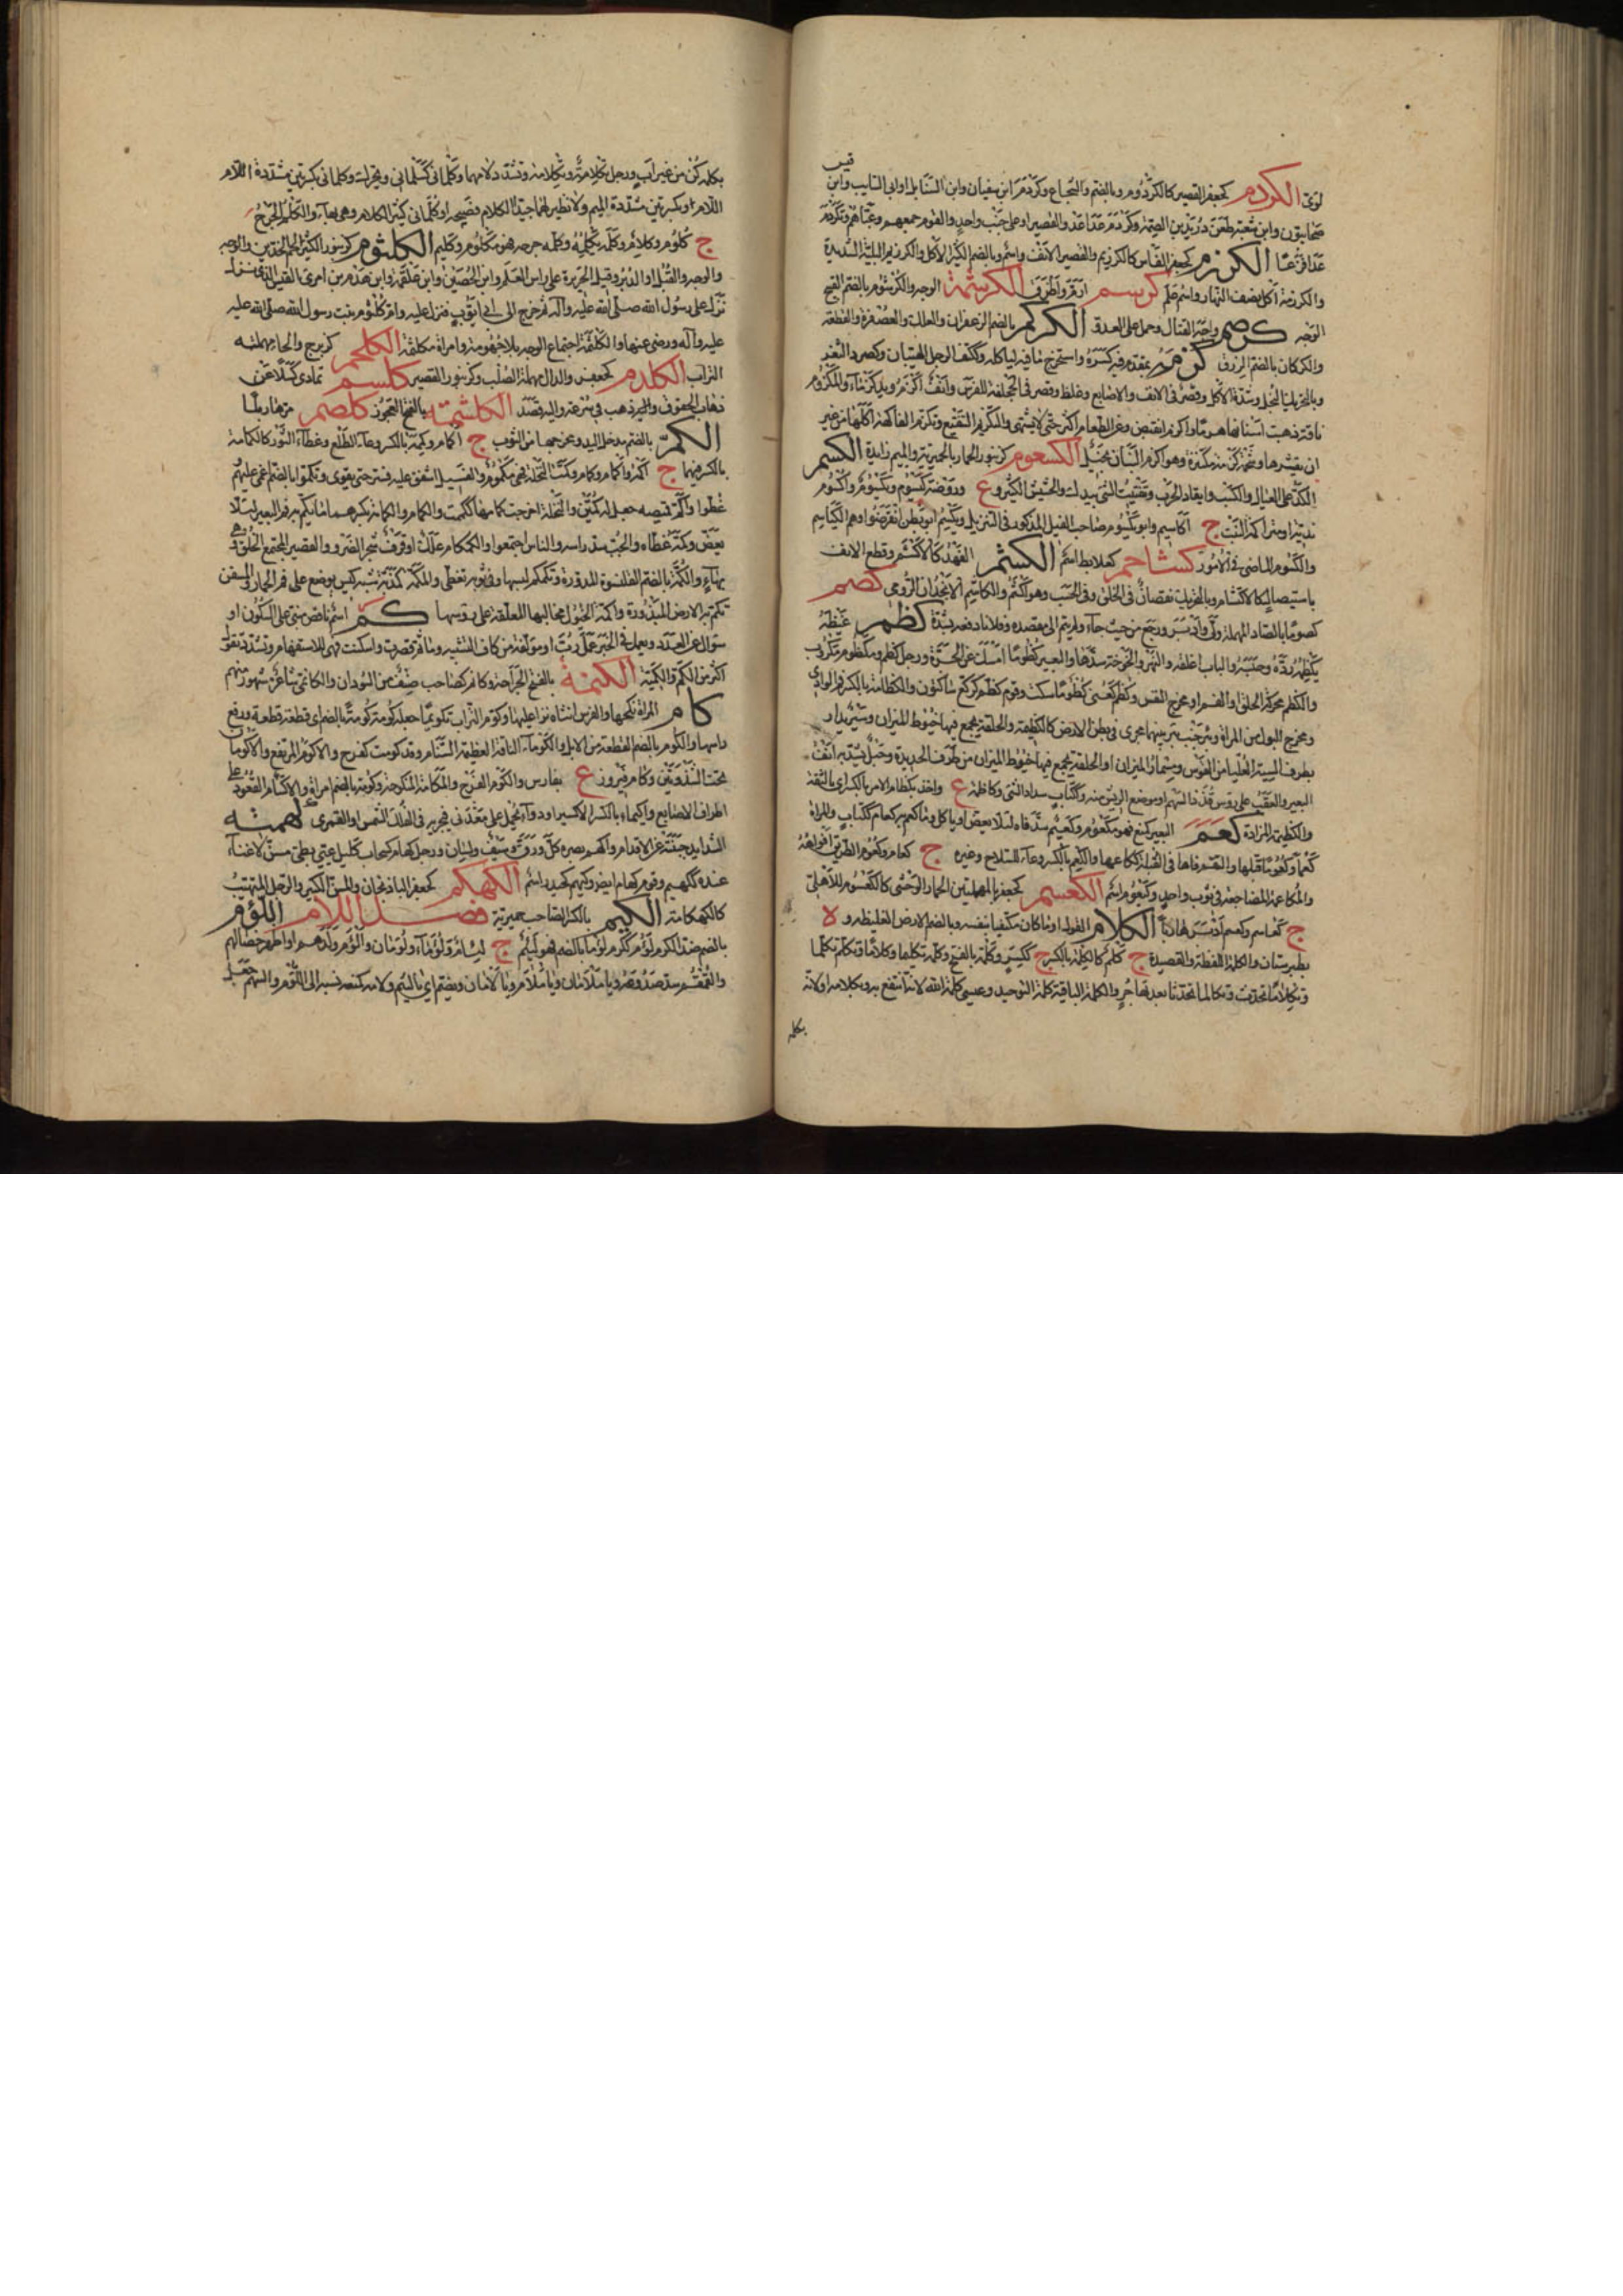 لؤى الكردم كجعفر القصير كالكردوم وبالضم والشجاع وكردم ابن سفيان وابن السنابل او ابى السايب وابن
قيس
صحابيون وابن شعبة طعن دريد بن الصمة وكردم عدا عدو القصير او على جنب واحد والقوم جمعهم وعباهم وتكردم
عدا فزعا الكرزم كجعفر الفاس كالكرزيم والقصير الانف واسم وبالضم الكثير الاكل والكرزيم البلية الشديدة
والكرزمة اكل نصف النهار واسم علم كرسم ازم واطرق الكرشمة الوجه والكرشوم بالضم القبيح
الوجه كرصم واجه القتال وحمل على العدو الكركم بالضم الزعفران والعلك والعصفر والقطعة
والكركمان بالضم الرزق كزمه بمقدم فيه كسره واستخرج ما فيه لياكله وككتف الرجل الهيبان وكصرد النغر
وبالتحريك البخل وشدة الاكل وقصر فى الانف والاصابع وغلظ وقصر فى الجحفلة للفرس وانف اكزم ويد كزماء والكزوم
ناقة ذهبت اسنانها هرما واكزم انقبض وعن الطعام اكثر حتى لا يشتهى والتكزيم التقفيع وتكزم الفاكهة اكلها من غير
ان يقشرها وهو اكزم البنان بخيل الكسعوم كزنبور الحمار بالحميرية والميم زايدة الكسم
الكد على العيال والكسب وايقاد الحرب وتفتيت الشئ بيدك والحشيش الكثير وع وروضة كيسوم ويكسوم واكسوم
ندية او متراكمة النبت ج اكاسيم وابو يكسوم صاحب الفيل المذكور فى التنزيل وكيسم ابو بطن انقرضوا وهم الكياسم
والكسوم الماضى فى الامور كشاجم كعلابط اسم الكشم الفهد كالاكشم وقطع الانف
باستيصال كالاكتشام وبالتحريك نقصان فى الخلق وفى الحسب وهو اكشم والكاشم الانجدان الرومى كصم
كصوما بالصاد المهملة ولى وادبر ورجع من حيث جاء ولم يتم الى مقصده وفلانا دفعه بشدة كظم غيظه
يكظمه رده وحبسه والباب اغلقه والنهر والخوخة سدهما والبعير كظوما امسك عن الجرة ورجل كظيم ومكظوم مكروب
والكظم محركة الحلق او الفم او مخرج النفس وكظم كعنى كظوما سكت وقوم كظم كركع ساكتون والكظامة بالكسر فم الوادى
ومخرج البول من المراة وبئر جنب بئر بينهما مجرى فى بطن الارض كالكظيمة والحلقة يجمع فيها خيوط الميزان وسير يدار
بطرف السية العليا من القوس ومسمار الميزان او الحلقة تجمع فيها خيوط الميزان من طرف الحديدة وحبل يشد به انف
البعير والعقب على رؤس قذذ السهم او موضع الريش منه وككتاب سداد الشئ وكاظمة ع واخذ بكظام الامر بالكسر اى بالثقة
والكظيمة المزادة كعم البعير كمنع فهو مكعوم وكعيم شد فاه لئلا يعض او ياكل وما كعم به كعام ككتاب والمراة
كعما وكعوما قبلها والتقم فاها فى القبلة ككاعمها والكعم بالكسر وعاء للسلاح وغيره ج كعام وكعوم الطريق افواهه
والمكاعمة المضاجعة فى ثوب واحد وكيعوم اسم الكعسم كجعفر بالمهملتين الحمار الوحشى كالكعسوم للاهلى
ج كعاسم وكعسم ادبر هاربا الكلام القول او ما كان مكتفيا بنفسه وبالضم الارض الغليظة و ة
بطبرستان والكلمة اللفظة والقصيدة ج كلم كالكلمة بالكسر ج ككسر وكلمة بالفتح وكلمه تكليما وكلاما وتكلم تكلما
وتكلاما تحدث وتكالما تحدثا بعد تهاجر والكلمة الباقية كلمة التوحيد وعيسى كلمة الله لانه انتفع به وبكلامه او لانه
بكلمة
بكلمة كن من غير اب ورجل تكلامة وتكلامة وتشدد لامهما وكلمانى كسلمانى وتحرك وكلمانى بكسرتين مشددة اللام
اللام وبكسرتين مشددة الميم ولا نظير لهما جيد الكلام فصيحه او كلمانى كثير الكلام وهى بهاء والكلم الجرح
ج كلوم وكلام وكلمه يكلمه وكلمه جرحه فهو مكلوم وكليم الكلثوم كزنبور الكثير لحم الخدين والوجه
نزل على رسول الله صلى الله عليه وآله ثم خرج الى ابى ايوب فنزل عليه وام كلثوم بنت رسول الله صلى الله عليه
عليه وآله ورضى عنها والكلثمة اجتماع لحم الوجه بلا جهومة وامراة مكلثمة الكلحم كزبرج والحاء مهملة
التراب الكلدم كجعفر والدال مهملة الصلب وكزنبور القصير كلسم تمادى كسلا عن
ذهاب فى سرعة واليه قصد الكلشمة بالفتح العجوز كلصم فر هاربا
الكم بالضم مدخل اليد ومخرجها من الثوب ج اكمام وكممة وبالكسر وعاء الطلع وغطاء النور كالكمامة
بالكسر فيهما ج اكمة واكمام وكمام وكمت النخلة فهى مكموم والفسيل اشفق عليه فستر حتى يقوى وتكموا بالضم اغمى عليهم
غطوا واكم قميصه جعل له كمين والنخلة اخرجت كمامها ككممت والكمام والكمامة بكسرهما ما يكم به فم البعير لئلا
يعض وكمه غطاه والحب سد راسه والناس اجتمعوا والكمكام علك او قرف شجر الضرو والقصير المجتمع الخلق وهى
بهاء والكمة بالضم القلنسوة المدورة وتكمكم لبسها وفى ثوبه تغطى والمكمة كمذبة شبه كيس يوضع على فم الحمار
تكم به الارض المبذورة واكمة الخيول مخاليها المعلقة على رؤسها كم اسم ناقص مبنى على السكون او
سؤال عن العدد ويعمل فى الخبر عمل رب او مؤلفة من كاف التشبيه وما ثم قصرت واسكنت وهى للاستفهام وتشدد تقول
اكثر من الكم والكمية الكنمة بالفتح الجراحة وكانم كصاحب صنف من السودان والكانمى شاعر مشهور منهم
كام المراة نكحها والفرس انثاه نزا عليها وكوم التراب تكويما جعله كومة كومة بالضم اى قطعة قطعة ورفع
راسها والكوم بالضم القطعة من الابل والكوماء الناقة العظيمة السنام وقد كومت كفرح والاكوم المرتفع والاكومان
تحت الثندوتين وكام فيروز ع بفارس والكوم الفرج والمكامة المنكوحة وكومة بالضم امراة والاكتيام القعود على
اطراف الاصابع والكيمياء بالكسر الاكسير او دواء يحمل على معدنى فيجريه فى الفلك الشمسى او القمرى كهمته
الشدايد جبنته عن الاقدام واكهم بصره كل ورق وسيف ولسان ورجل كهام كسحاب كليل عيى بطئ مسن لا غناء
عنده ككهيم وقوم كهام ايضا وكيهم كحيدر اسم الكهكم كجعفر الباذنجان والمسن الكبير والرجل المتهيب
كالكهكامة الكيم بالكسر الصاحب حميرية فصل اللام اللؤم
بالضم ضد الكرم لؤم ككرم لؤما بالضم فهو لئيم ج لئام ولؤماء ولؤمان والؤم ولدهم او اظهر خصالهم